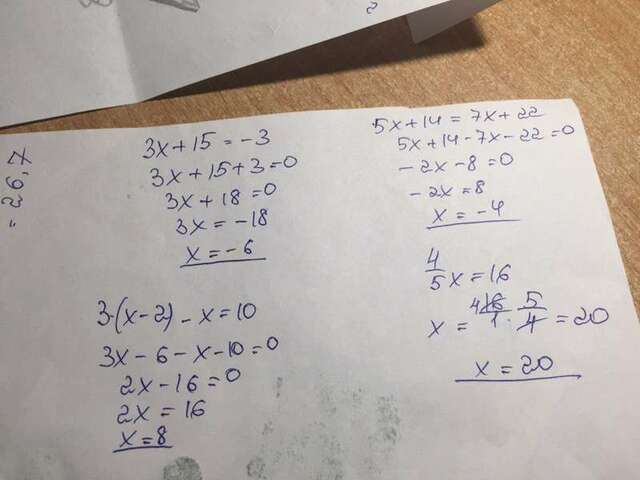 3x + 15 = -3
3x + 15 + 3 = 0
3x + 18 = 0
3x = -18
x = -6
3·(x-2) - x = 10
3x - 6 - x - 10 = 0
2x - 16 = 0
2x = 16
x = 8
5x + 14 = 7x + 22
5x + 14 - 7x - 22 = 0
-2x - 8 = 0
-2x = 8
x = -4
4/5 x = 16
x = 4 16/1 · 5/4 = 20
x = 20